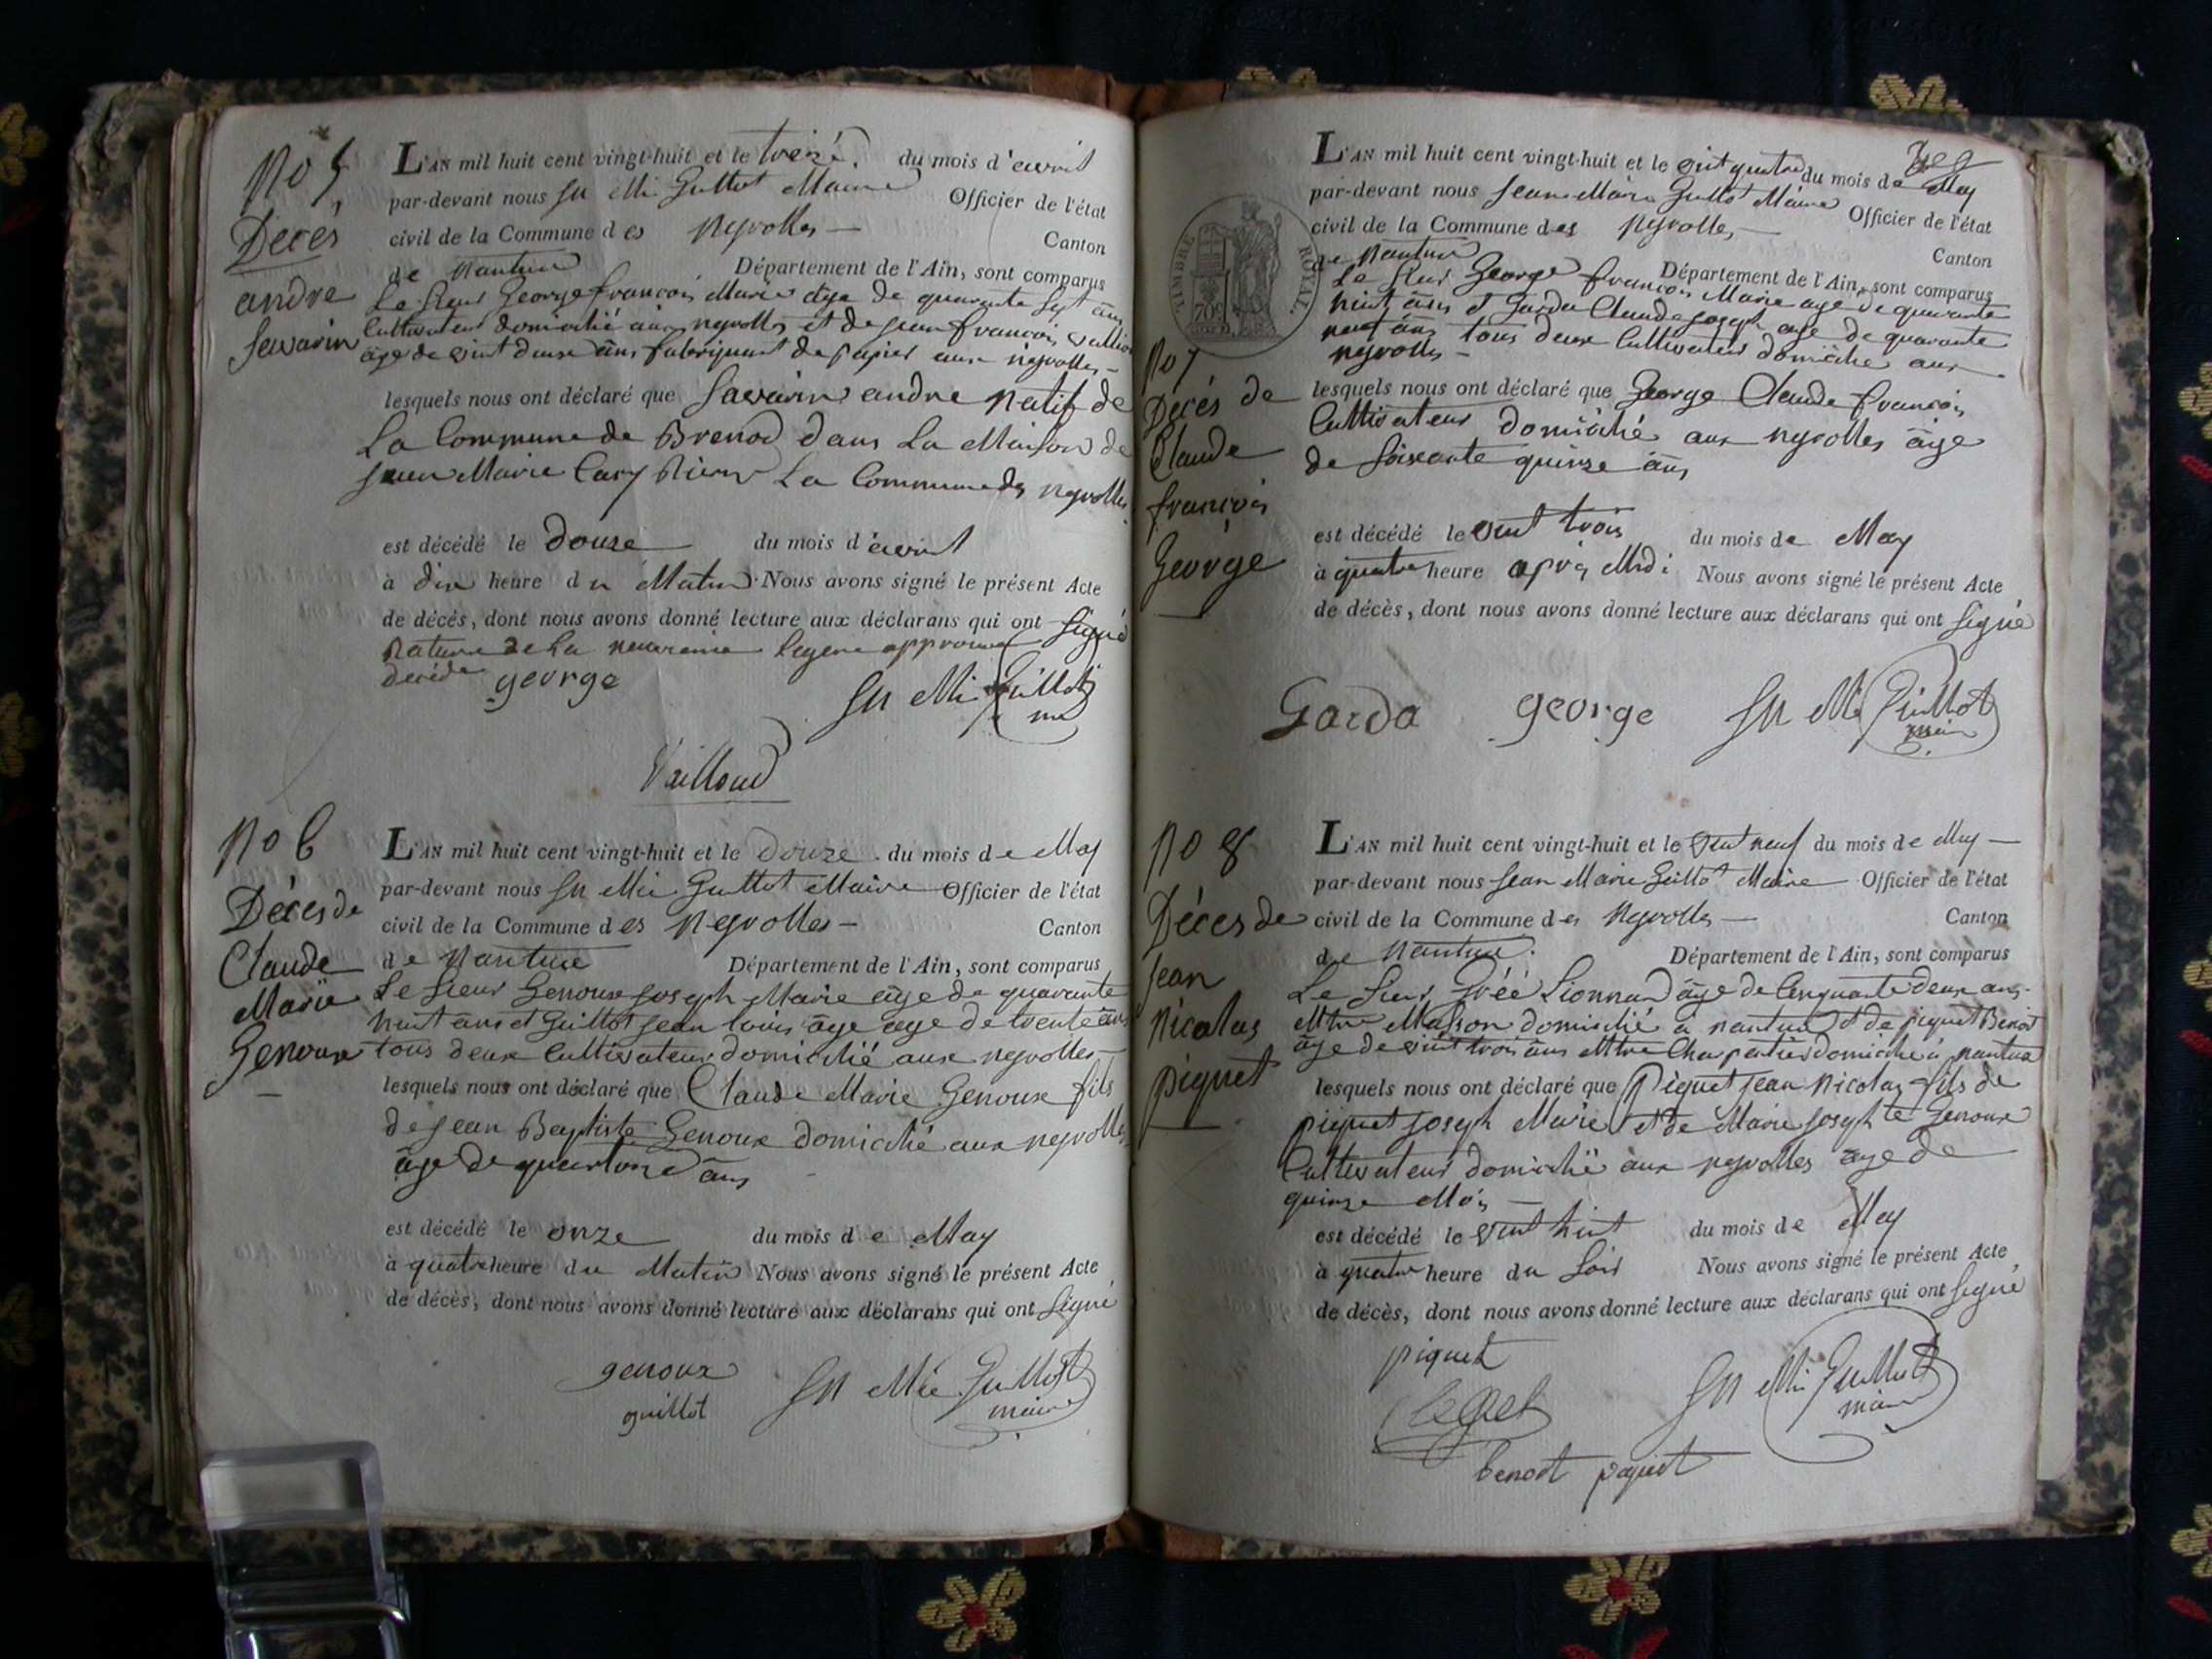 No 5
Décés
andre
Savarin
L'AN mil huit cent vingt-huit et le treize du mois d'avril
par-devant nous Jn Mie Guillot Maire Officier de l'état
civil de la Commune des Neyrolles — Canton
de Nantua Département de l'Ain, sont comparus
Le Sieur George françois Marie âge de quarante sept ans
Cultivateur domicilié aux neyrolles et de jean françois
âge de vint deux ans fabriquant de papier aux neyrolles —
lesquels nous ont déclaré que Savarin andre Natif de
La Commune de Brenod dans La Maison de
jean Marie Cary La Commune des neyrolles
est décédé le douze du mois d'avril
à dix heure du Matin Nous avons signé le présent Acte
de décès, dont nous avons donné lecture aux déclarans qui ont Signé
george
Jn Mie Guillot
Vailloud
No 6
Déces de
Claude
Marie
Genoux
L'AN mil huit cent vingt-huit et le douze du mois de May
par-devant nous Jn Mie Guillot Maire Officier de l'état
civil de la Commune des Neyrolles — Canton
de Nantua Département de l'Ain, sont comparus
Le Sieur Genoux joseph Marie âge de quarante
huit ans et Guillot jean louis âge age de trente ans
tous deux Cultivateur domicilié aux neyrolles —
lesquels nous ont déclaré que Claude Marie Genoux fils
de jean Baptiste Genoux domicilié aux neyrolles
âge de quartorze ans
est décédé le onze du mois de May
à quatre heure du Matin Nous avons signé le présent Acte
de décès, dont nous avons donné lecture aux déclarans qui ont Signé
genoux
guillot
Jn Mie Guillot
maire
TIMBRE ROYAL
70c
No 7
Decés de
Claude
françois
George
L'AN mil huit cent vingt-huit et le vint quatre du mois de May
par-devant nous jean Marie Guillot Maire Officier de l'état
civil de la Commune des Neyrolles — Canton
de Nantua Département de l'Ain, sont comparus
Le Sieur George françois Marie age de quarante
huit ans et Garda Claude joseph age de quarante
neuf ans tous deux Cultivateur domicilié aux
neyrolles —
lesquels nous ont déclaré que George Claude françois
Cultivateur domicilié aux neyrolles âge
de soixante quinze ans
est décédé le vint trois du mois de May
à quatre heure après Midi Nous avons signé le présent Acte
de décès, dont nous avons donné lecture aux déclarans qui ont Signé
Garda george Jn Mie Guillot
maire
No 8
Déces de
jean
Nicolas
piquet
L'AN mil huit cent vingt-huit et le vint neuf du mois de May —
par-devant nous jean Marie Guillot Maire — Officier de l'état
civil de la Commune des Neyrolles — Canton
de Nantua. Département de l'Ain, sont comparus
Le Sieur Lionnard âge de Cinquante deux ans
Mtre Masson domicilié a nantua et de piquet Benoit
âge de vint trois ans Mtre Charpentier domicilié à nantua
lesquels nous ont déclaré que Piquet jean Nicolas fils de
piquet joseph Marie et de Marie josephte Genoux
Cultivateur domicilié aux neyrolles âge de
quinze Mois —
est décédé le vint huit du mois de May
à quatre heure du Soir Nous avons signé le présent Acte
de décès, dont nous avons donné lecture aux déclarans qui ont Signé
piquet
Jn Mie Guillot
maire
benoit piquet